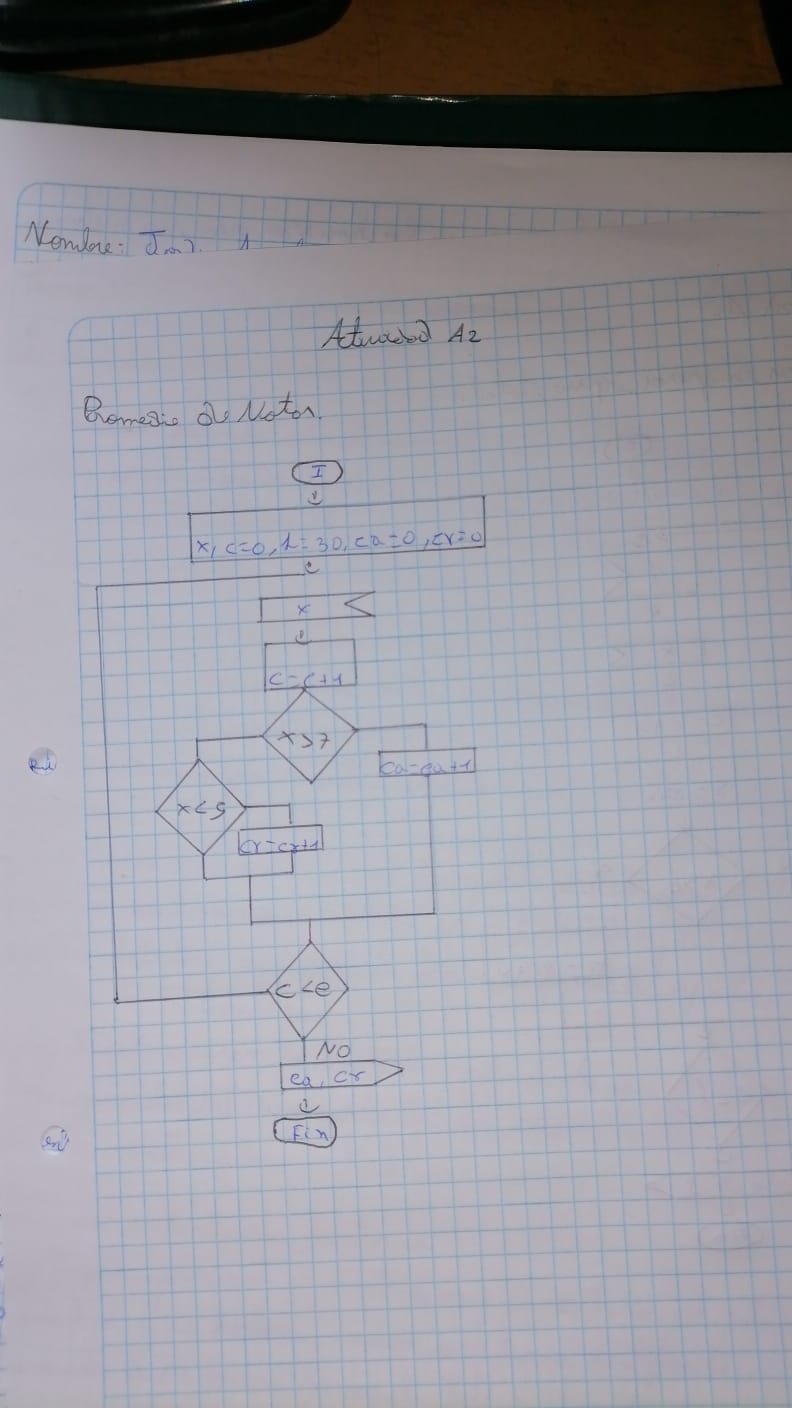 Nombre:
Actividad A2
Promedio de Notas.
I
x, c=0, l=30, ca=0, cr=0
x
c=c+1
x>7
ca=ca+1
x<5
cr=cr+1
c<e
NO
ca, cr
Fin